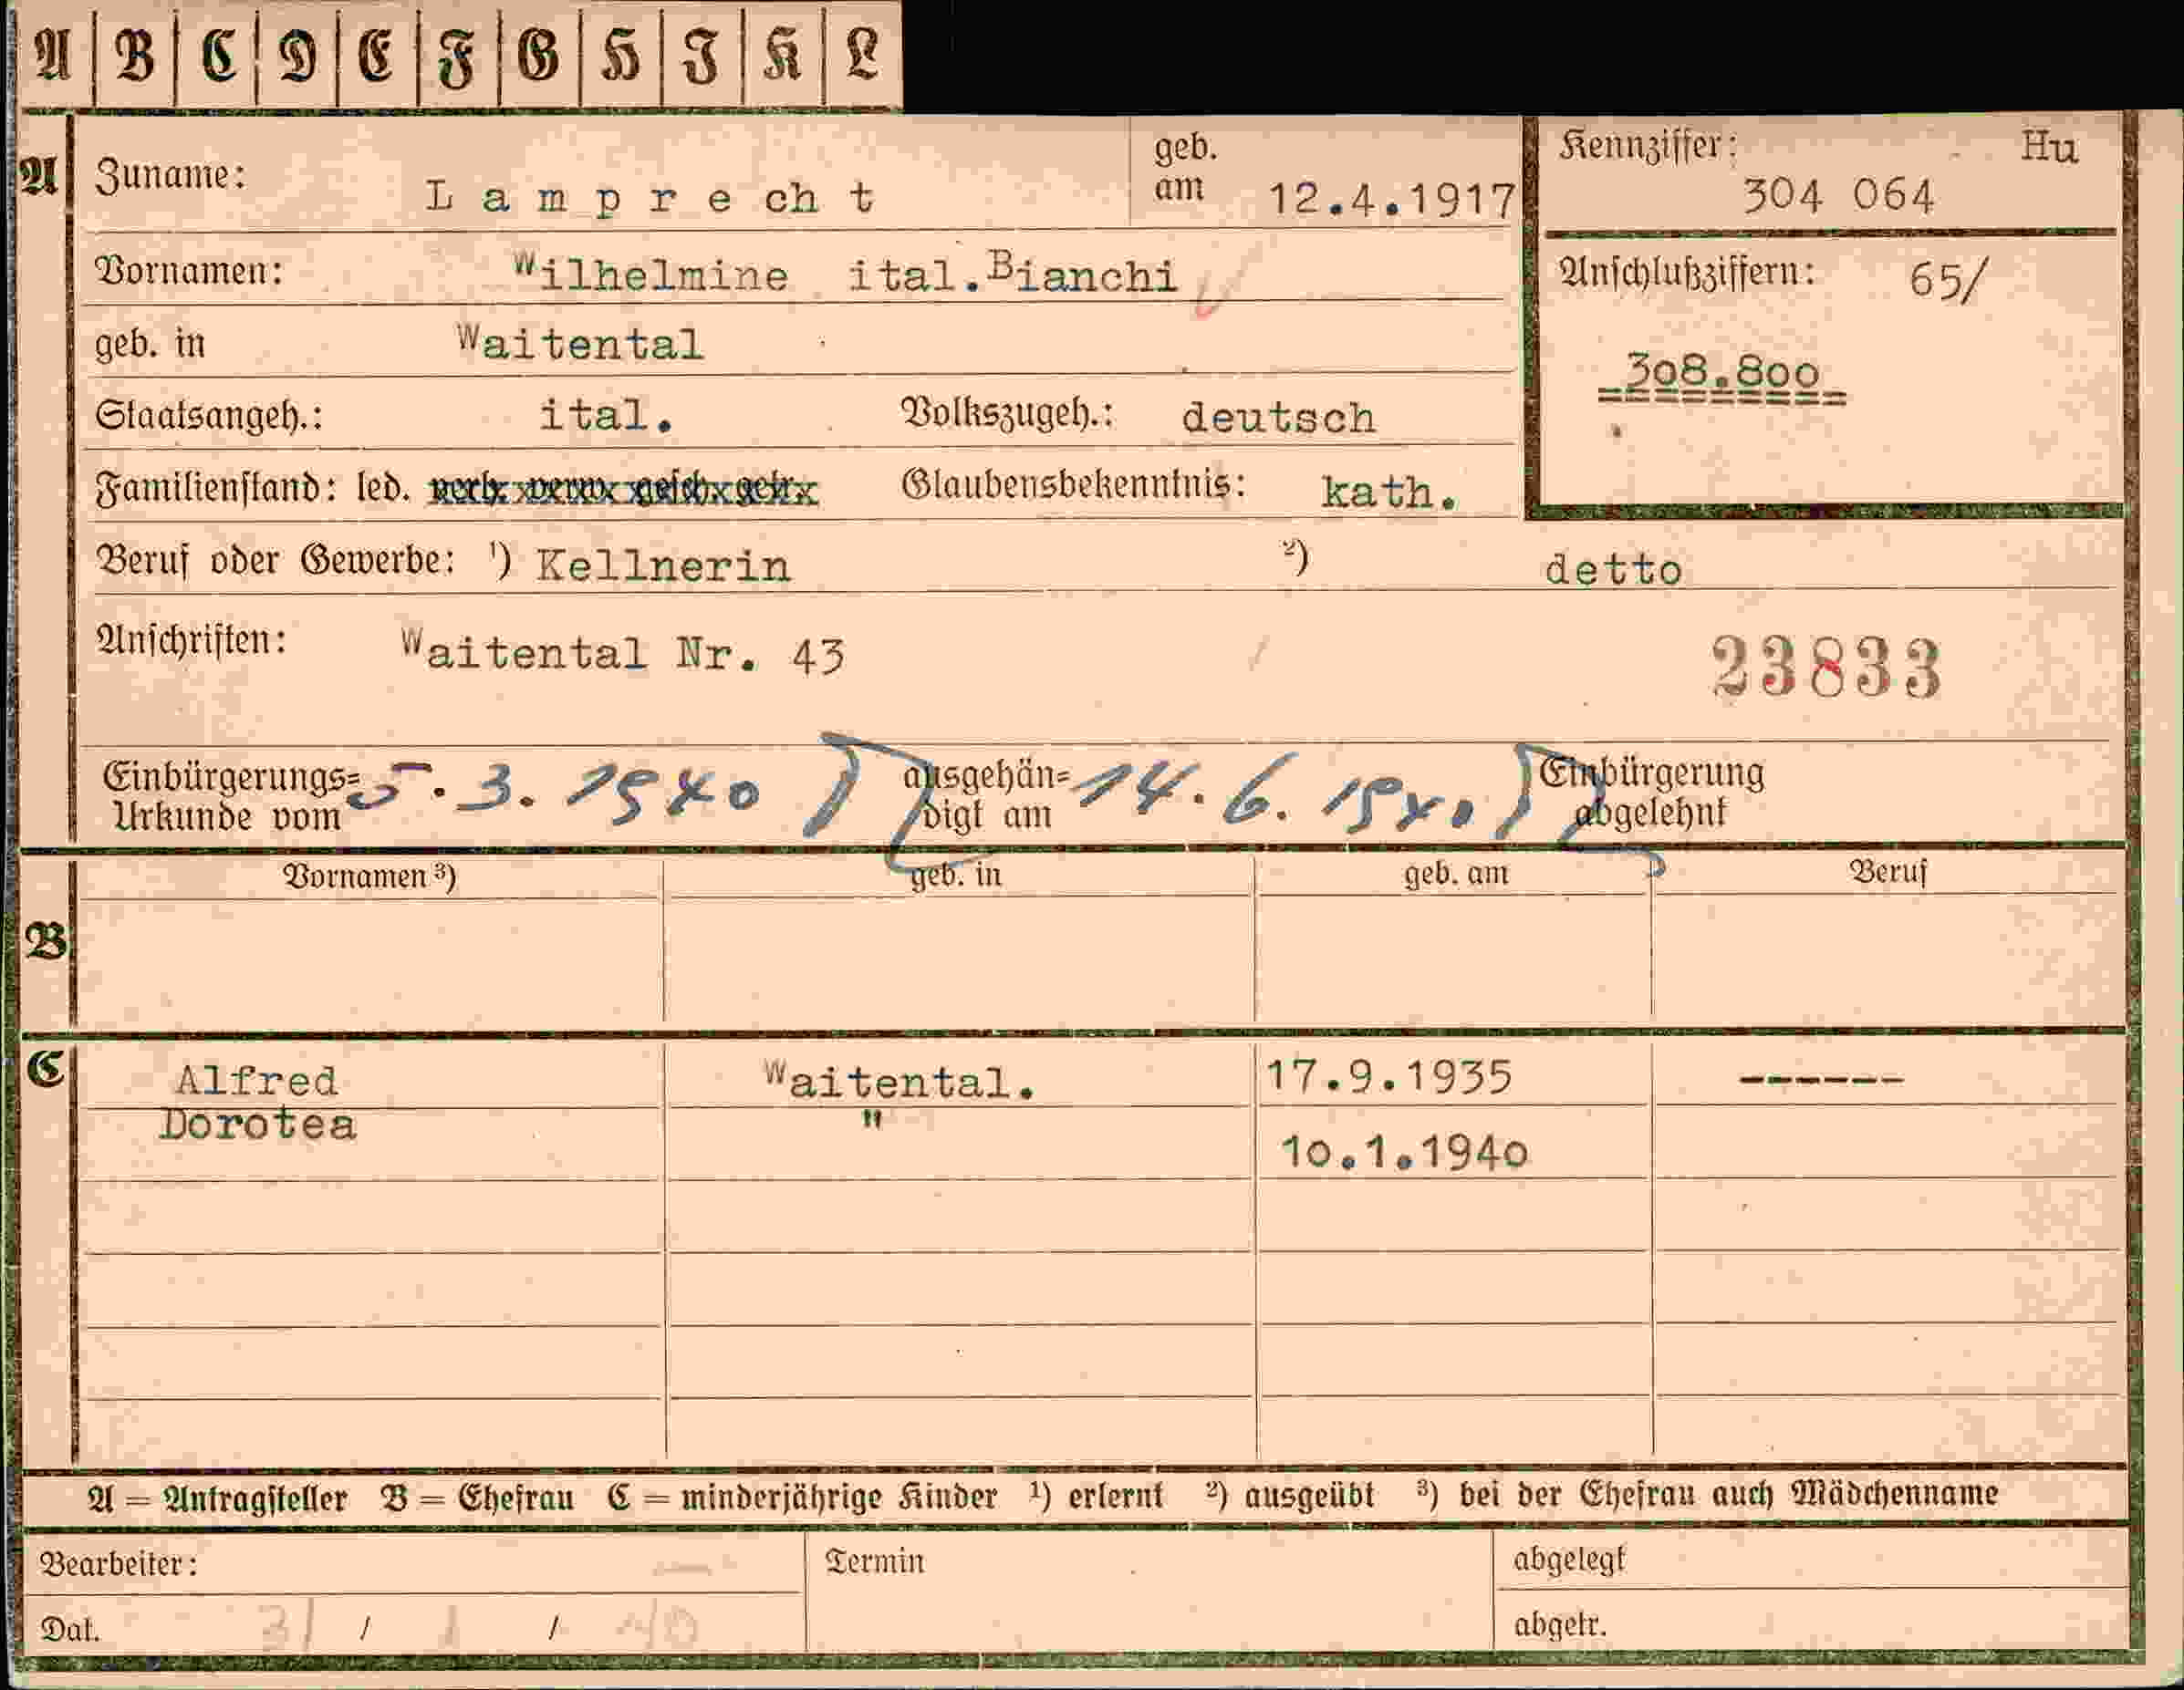 A B C D E F G H J K L
A Zuname: Lamprecht geb. am 12.4.1917
Kennziffer: Hu
304 064
Vornamen: Wilhelmine ital.Bianchi
Anschlußziffern: 65/
geb. in Waitental
308.800
=========
Staatsangeh.: ital. Volkszugeh.: deutsch
Familienstand: led. verh. verw. gesch. getr. Glaubensbekenntnis: kath.
Beruf oder Gewerbe: ¹) Kellnerin ²) detto
Anschriften: Waitental Nr. 43
23833
Einbürgerungs= Urkunde vom 5.3.1940 ausgehän= digt am 14.6.1940 Einbürgerung abgelehnt
B Vornamen ³) geb. in geb. am Beruf
C Alfred Waitental. 17.9.1935 ------
Dorotea " 10.1.1940
A = Antragsteller B = Ehefrau C = minderjährige Kinder ¹) erlernt ²) ausgeübt ³) bei der Ehefrau auch Mädchenname
Bearbeiter: Termin abgelegt
Dat. 31 / 1 / 40 abgetr.